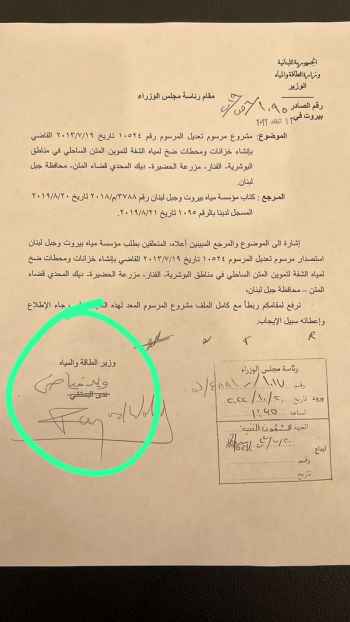 الجمهورية اللبنانية
وزارة الطاقة والمياه
الوزير
رقم الصادر
بيروت في
مقام رئاسة مجلس الوزراء
الموضوع: مشروع مرسوم تعديل المرسوم رقم ١٠٥٢٤ تاريخ ٢٠١٣/٧/١٩ القاضي
بإنشاء خزانات ومحطات ضخ لمياه الشفة لتموين المتن الساحلي في مناطق
البوشرية، الفنار، مزرعة الحضيرة، ديك المحدي قضاء المتن، محافظة جبل
لبنان.
المرجع : كتاب مؤسسة مياه بيروت وجبل لبنان رقم ٣٧٨٨/م/٢٠١٨ تاريخ ٢٠١٩/٨/٢٠
المسجل لدينا بالرقم ١٠٩٥ تاريخ ٢٠١٩/٨/٢١.
إشارة الى الموضوع والمرجع المبينين أعلاه، المتعلقين بطلب مؤسسة مياه بيروت وجبل لبنان
استصدار مرسوم تعديل المرسوم ١٠٥٢٤ تاريخ ٢٠١٣/٧/١٩ القاضي بإنشاء خزانات ومحطات ضخ
لمياه الشفة لتموين المتن الساحلي في مناطق البوشرية، الفنار، مزرعة الحضيرة، ديك المحدي قضاء
المتن – محافظة جبل لبنان،
نرفع لمقامكم ربطاً مع كامل الملف مشروع المرسوم المعد لهذه رجاء الإطلاع
وإعطائه سبيل الإيجاب.
وزير الطاقة والمياه
وليد فياض
ندى البستاني
رئاسة مجلس الوزراء
رقم
ورود تاريخ
ساعة
رقم
تاريخ